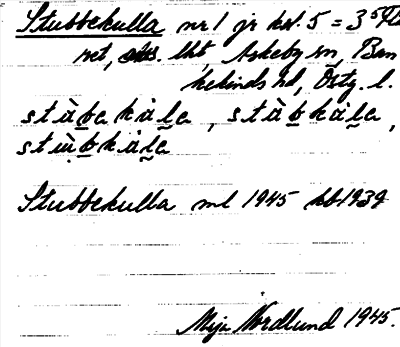 Stubbekulla nr 1 jr kst. 5 = 3
net, lht, Askeby sn, Ban
kekinds hd, Östg. l.
stàbakàla, stàbkàla,
stùbkàla
Stubbekulla ml 1945 kb 1939
Maja Nordlund 1945.